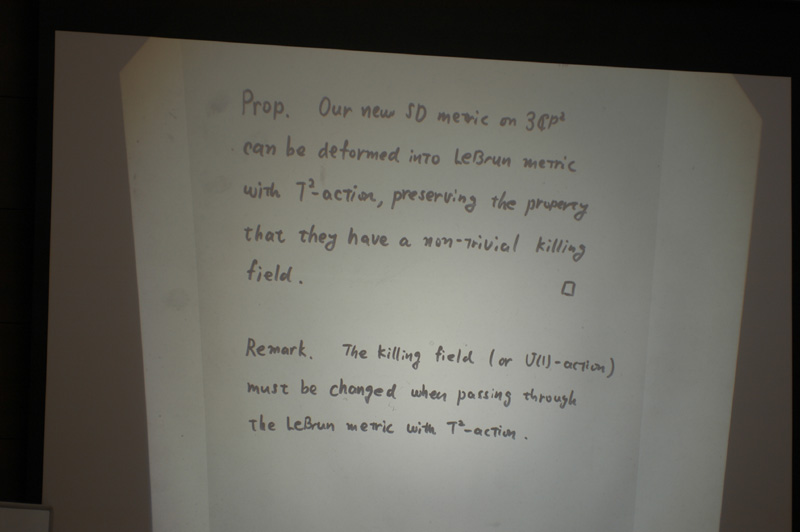 Prop. Our new SD metric on 3ℂP²
can be deformed into LeBrun metric
with T²-action, preserving the property
that they have a non-trivial killing
field. □
Remark. The killing field (or U(1)-action)
must be changed when passing through
the LeBrun metric with T²-action.